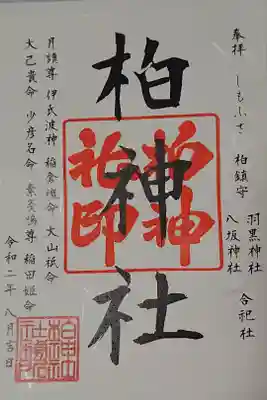 奉拝 しもふさ 柏鎮守
羽黒神社
八坂神社
合祀社
柏神社
柏神社印
月讀尊 伊氏波神 稲倉魂命 大山祇命
大己貴命 少彦名命 素戔嗚尊 稲田姫命
令和二年八月吉日